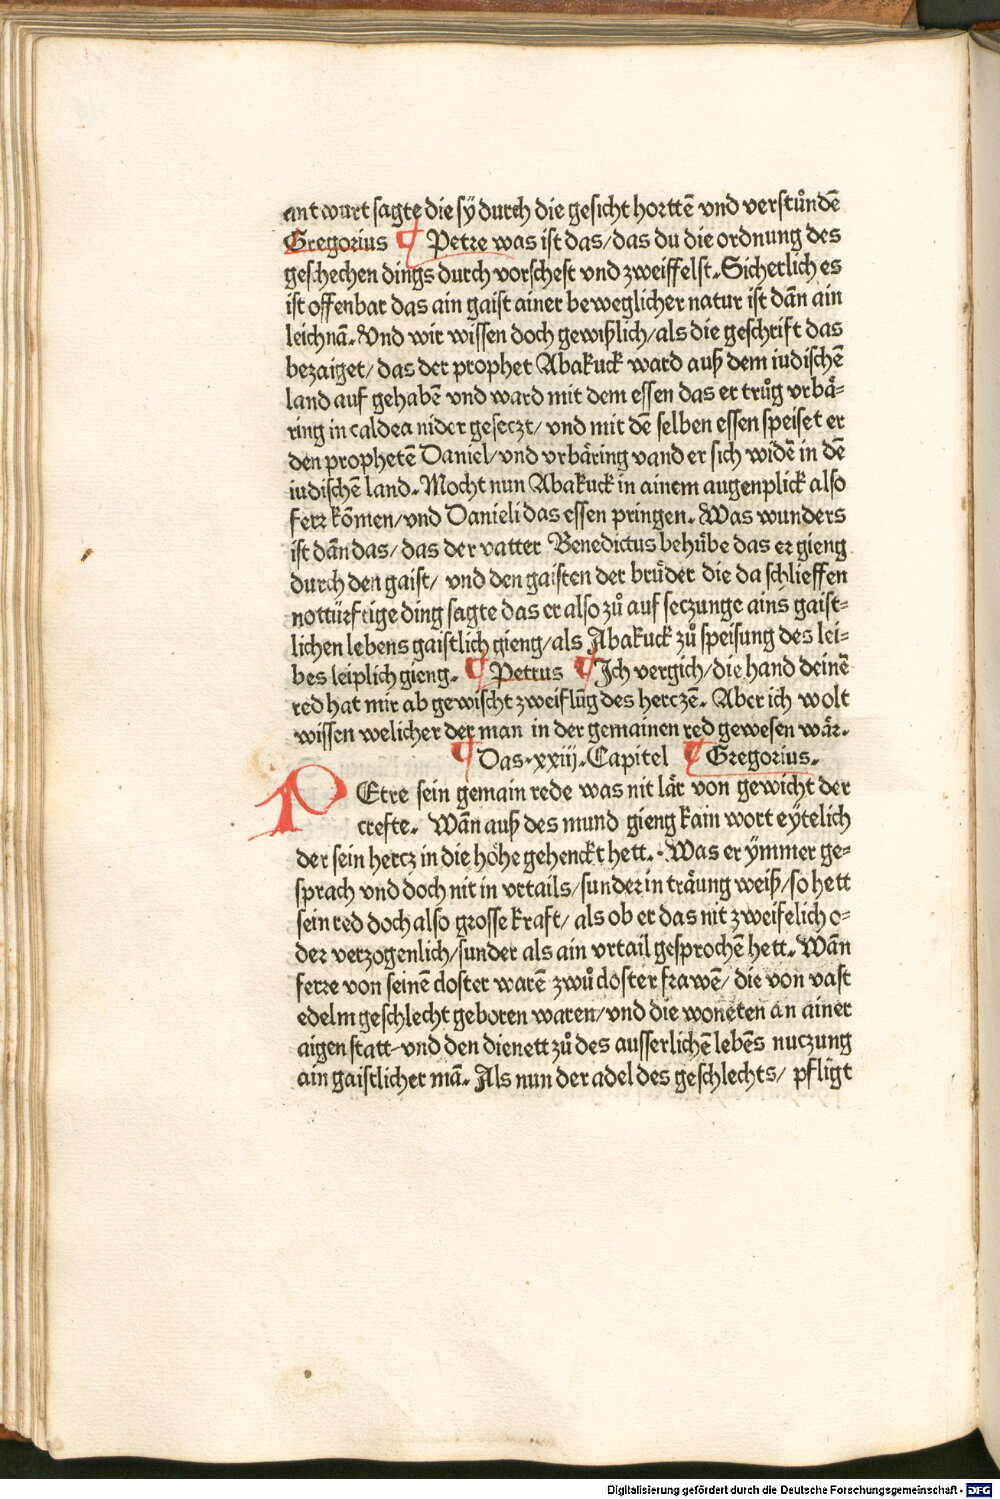 antwurt sagte die sÿ durch die gesicht hortten̄ vnd verstůndē
Gregorius ¶ Petre was ist das/das du die ordnung des
geschechen dings durch vorschest vnd zweiffelst. Sicherlich es
ist offenbar das ain gaist ainer beweglicher natur ist dān ain
leichnā. Vnd wir wissen doch gewißlich/als die geschrift das
bezaiget/ das der prophet Abakuck ward auß dem iudischē
land auf gehabē vnd ward mit dem essen das er trůg vrbä-
ring in caldea nider geseczt/ vnd mit dē selben essen speiset er
den prophetē Daniel/ vnd vrbäring vand er sich widē in dē
iudischē land. Mocht nun Abakuck in ainem augenplick also
ferr kōmen/vnd Danieli das essen pringen. Was wunders
ist dān das/ das der vatter Benedictus behůbe das er gieng
durch den gaist/ vnd den gaisten der brüder die da schlieffen
nottürftige ding sagte das er also zů auf seczunge ains gaist-
lichen lebens gaistlich gieng/als Abakuck zů speisung des lei-
bes leiplich gieng. ¶ Pettus ¶ Ich vergich/die hand deinē
red hat mir ab gewischt zweiflūg des herczē. Aber ich wolt
wissen welicher der man in der gemainen red gewesen wär.
¶ Das .xxiij. Capitel ¶ Gregorius.
PEtre sein gemain rede was nit lär von gewicht der
crefte. Wān auß des mund gieng kain wort eÿtelich
der sein hercz in die höhe gehenckt hett. Was er ÿmmer ge-
sprach vnd doch nit in vrtails/sunder in träung weiß/so hett
sein red doch also grosse kraft/ als ob er das nit zweifelich o-
der verzogenlich/sunder als ain vrtail gesprochē hett. Wān
ferre von seinē closter warē zwů closter frawē/ die von vast
edelm geschlecht geboren waren/vnd die woneten an ainer
aigen statt vnd den dienett zů des ausserlichē lebēs nuczung
ain gaistlicher mā. Als nun der adel des geschlechts/ pfligt
Digitalisierung gefördert durch die Deutsche Forschungsgemeinschaft - DFG